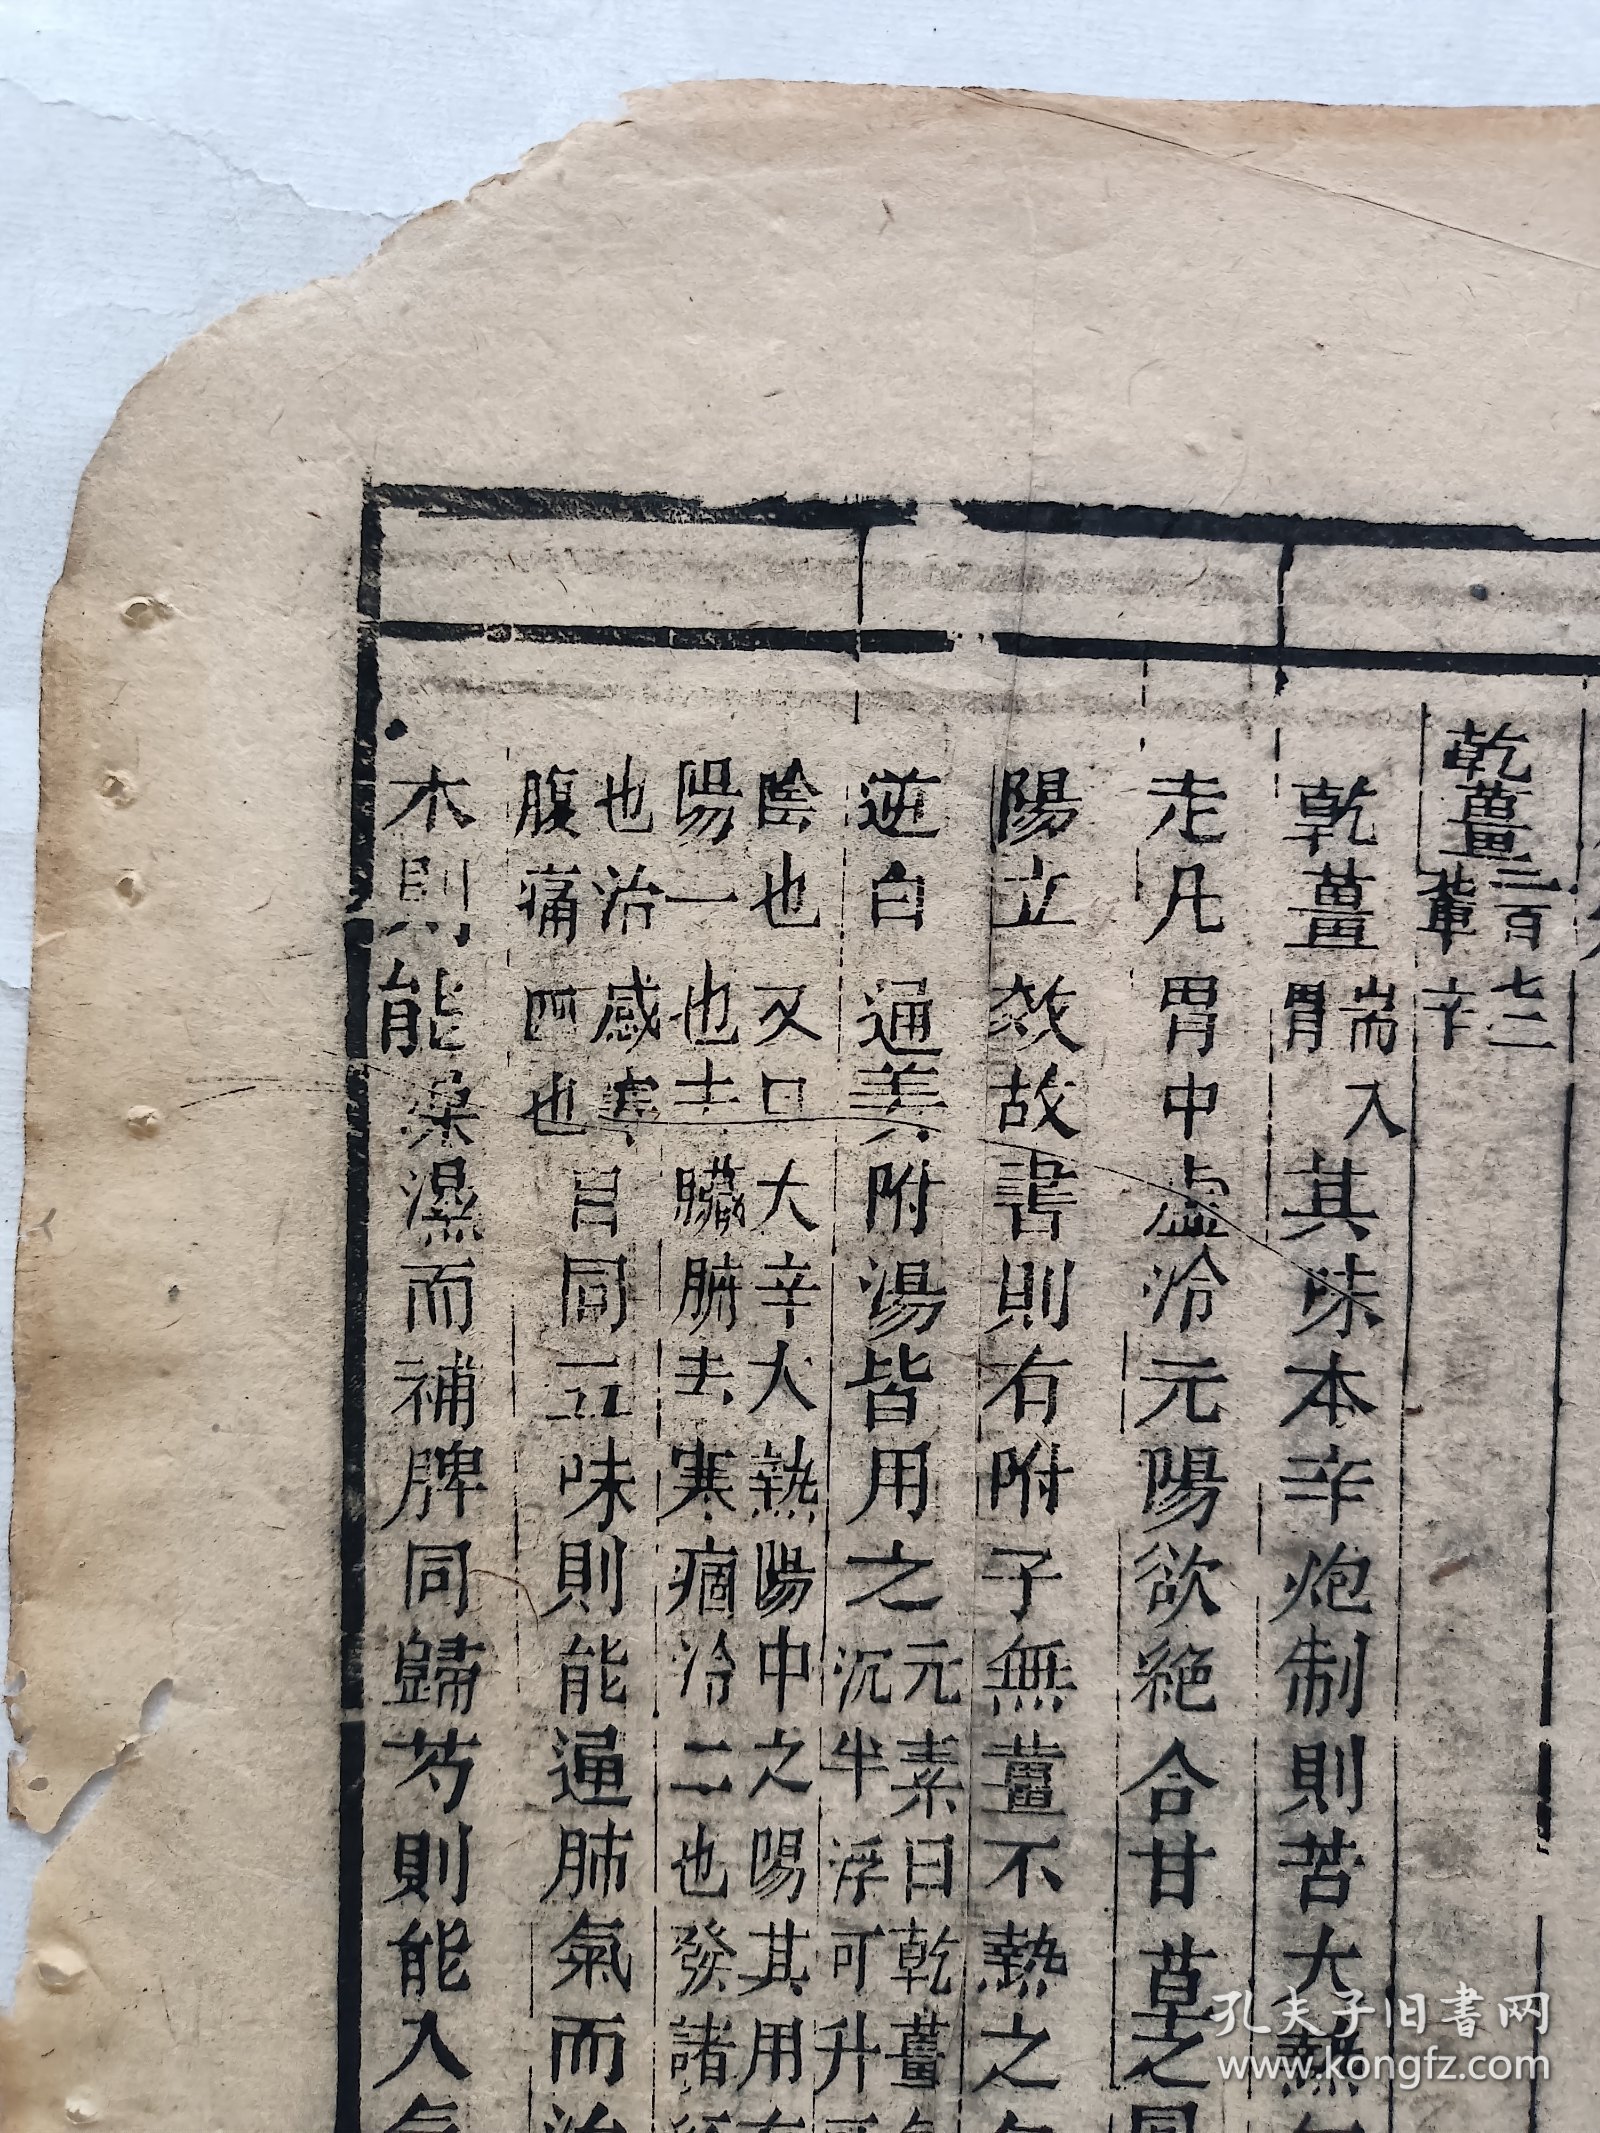 乾薑三百七二
葷辛
乾薑
耑入
胃
其味本辛炮制則苦大熱
走凡胃中虛冷元陽欲絶合甘草之同
陽立效故書則有附子無薑不熱之
逆白通姜附湯皆用之
元素曰乾薑
沉半浮可升可
陰也又曰大辛大熱陽中之陽其用有
陽一也去臟腑去寒痼冷二也發諸經
也治感寒
腹痛四也
呂同五味則能通肺氣而治
木則能燥濕而補脾同歸芍則能入氣
孔夫子旧書网
www.kongfz.com